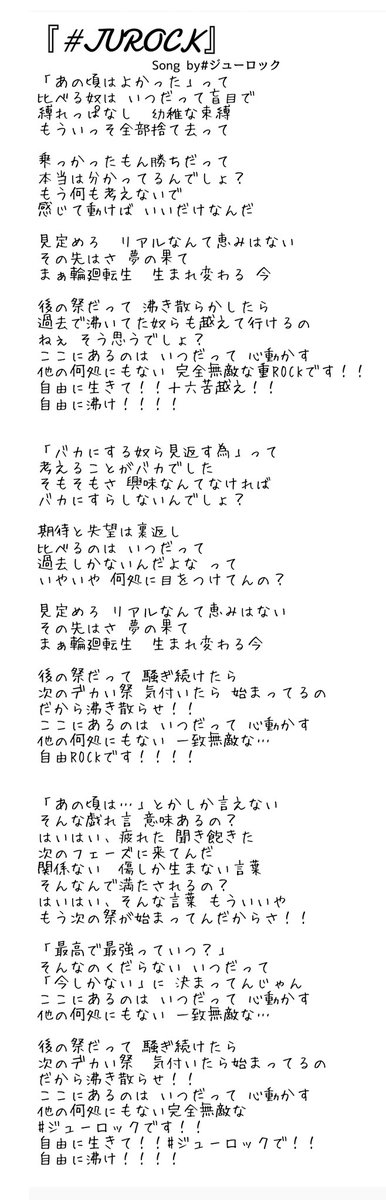 『#JUROCK』
Song by#ジューロック
「あの頃はよかった」って
比べる奴は いつだって盲目で
縛れっぱなし　幼稚な束縛
もういっそ全部捨て去って
乗っかったもん勝ちだって
本当は分かってるんでしょ?
もう何も考えないで
感じて動けば いいだけなんだ
見定めろ　リアルなんて恵みはない
その先はさ 夢の果て
まぁ輪廻転生　生まれ変わる 今
後の祭だって 沸き散らかしたら
過去で沸いてた奴らも越えて行けるの
ねぇ そう思うでしょ?
ここにあるのは いつだって 心動かす
他の何処にもない 完全無敵な重ROCKです!!
自由に生きて!!十六苦越え!!
自由に沸け!!!!
「バカにする奴ら見返す為」って
考えることがバカでした
そもそもさ 興味なんてなければ
バカにすらしないんでしょ?
期待と失望は裏返し
比べるのは いつだって
過去しかないんだよな って
いやいや 何処に目をつけてんの?
見定めろ リアルなんて恵みはない
その先はさ 夢の果て
まぁ輪廻転生　生まれ変わる今
後の祭だって 騒ぎ続けたら
次のデカい祭 気付いたら 始まってるの
だから沸き散らせ!!
ここにあるのは いつだって 心動かす
他の何処にもない 一致無敵な…
自由ROCKです!!!!
「あの頃は…」とかしか言えない
そんな戯れ言 意味あるの?
はいはい、疲れた 聞き飽きた
次のフェーズに来てんだ
関係ない　傷しか生まない言葉
そんなんで満たされるの?
はいはい、そんな言葉 もういいや
もう次の祭が始まってんだからさ!!
「最高で最強っていつ?」
そんなのくだらない いつだって
「今しかない」に 決まってんじゃん
ここにあるのは いつだって 心動かす
他の何処にもない 一致無敵な…
後の祭だって 騒ぎ続けたら
次のデカい祭　気付いたら始まってるの
だから沸き散らせ!!
ここにあるのは いつだって 心動かす
他の何処にもない完全無敵な
#ジューロックです!!
自由に生きて!!#ジューロックで!!
自由に沸け!!!!